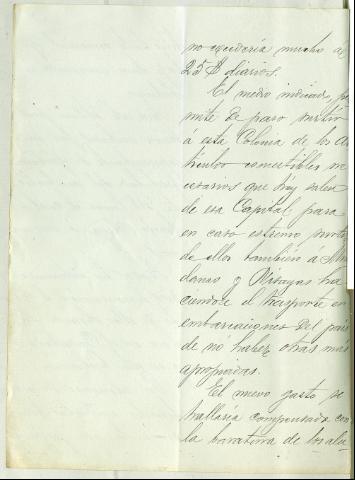 no excedería mucho de
25 $ diarios.
El medio indicado, per
mite de paso surtir
á esta Colonia de los ar
tículos comestibles ne
cesarios que hoy salen
de esa Capital, para
en caso estremo surtir
de ellos también á Min
danao y Visayas ha
ciendose el trasporte en
embarcaciones del pais
de nó haber otras más
apropiadas.
El nuevo gasto se
hallaría compensado con
la baratura de los ali